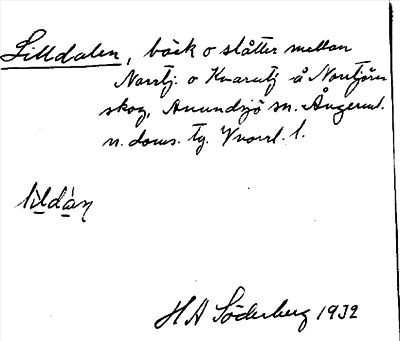 Lilldalen, bäck o slåtter mellan
Norrtj. o Kvarntj å Norrtjärn
skog, Anundsjö sn. Ångerml.
n. doms. tg. Vnorrl. l.
lìldàn
H A Söderberg 1932